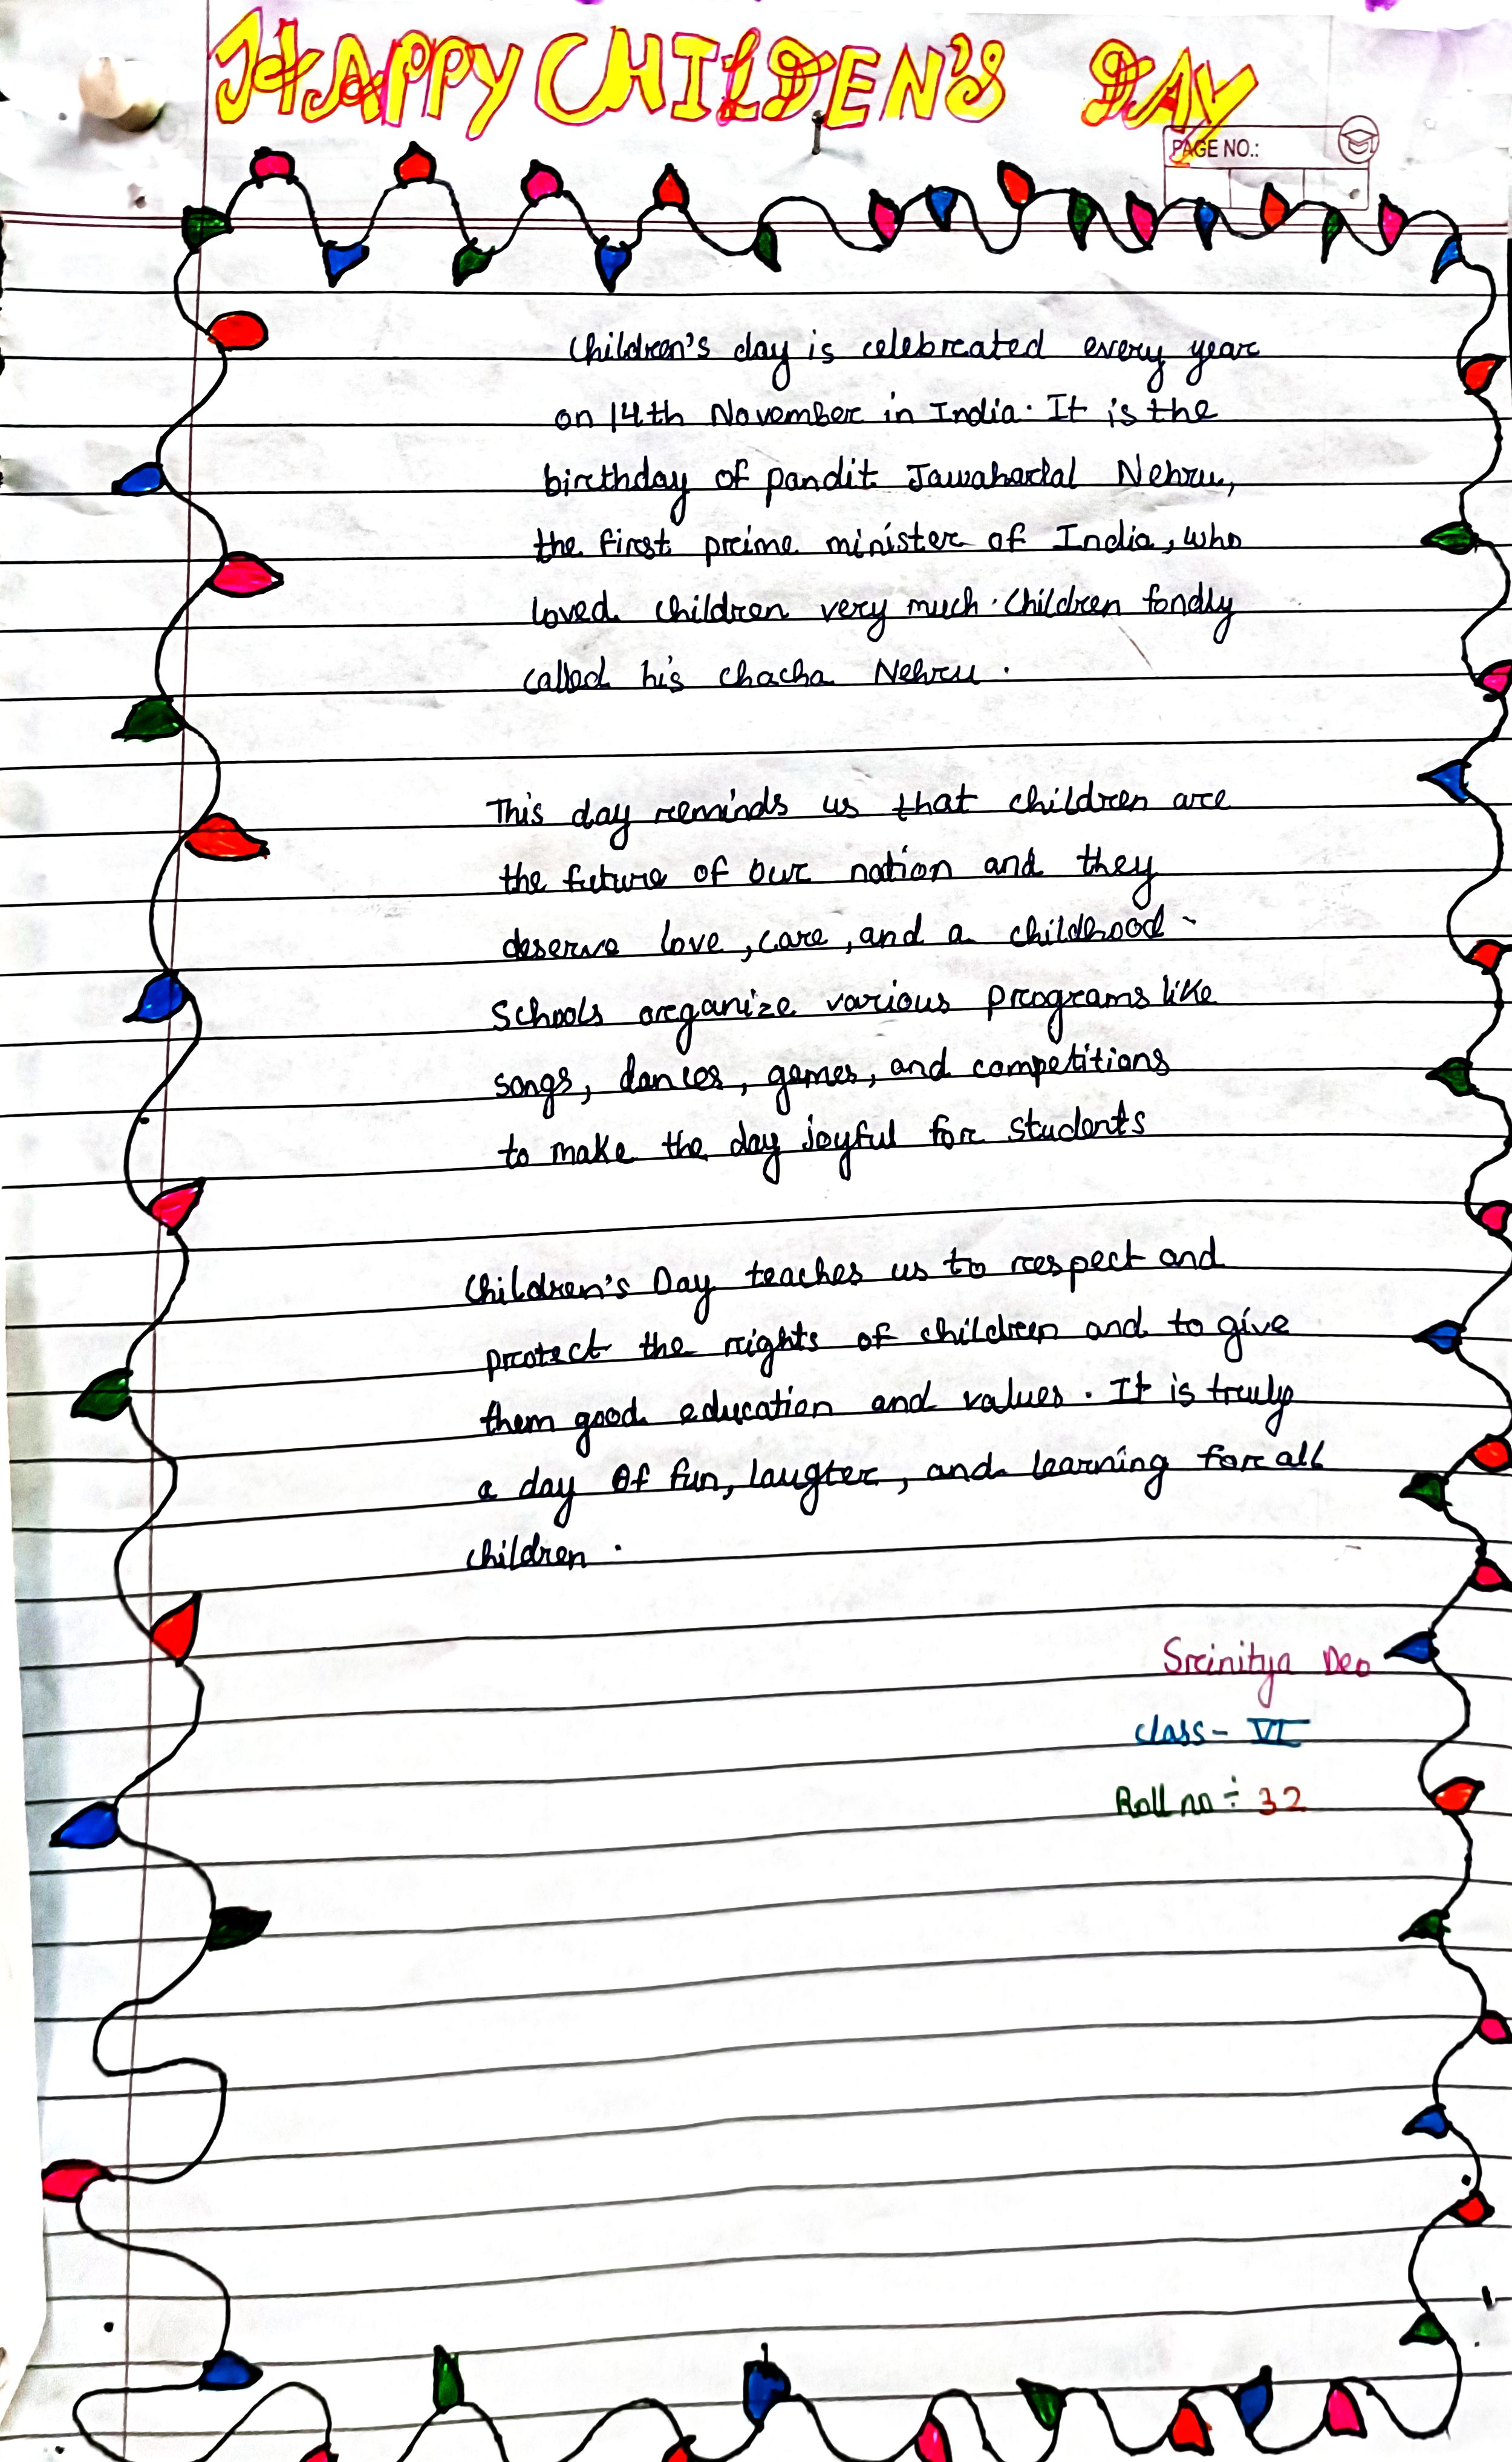 HAPPY CHILDEN'S DAY
PAGE NO.:
Children's day is celebrated every year
on 14th November in India. It is the
birthday of pandit Jawaharlal Nehru,
the first prime minister of India, who
loved children very much. Children fondly
called his chacha Nehru.
This day reminds us that children are
the future of our nation and they
deserve love, care, and a childhood.
Schools organize various programs like
songs, dances, games, and competitions
to make the day joyful for students
Children's Day teaches us to respect and
protect the rights of children and to give
them good education and values. It is truly
a day of fun, laugter, and learning for all
children.
Srinitya Deo
class - VI
Roll no ÷ 32